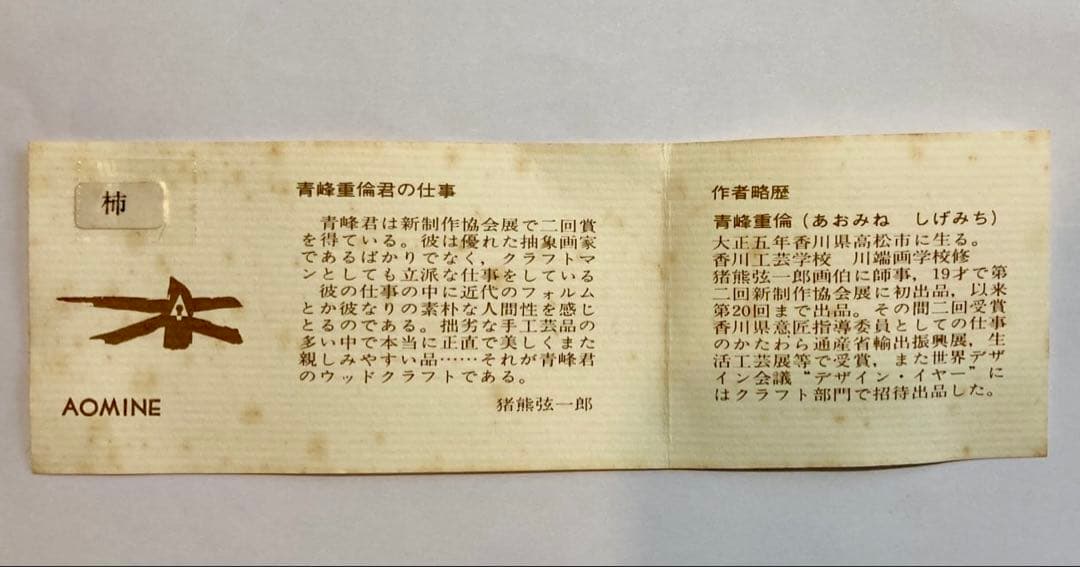 柿
AOMINE
青峰重倫君の仕事
青峰君は新制作協会展で二回賞
を得ている。彼は優れた抽象画家
であるばかりでなく，クラフトマ
ンとしても立派な仕事をしている
彼の仕事の中に近代のフォルム
とか彼なりの素朴な人間性を感じ
とるのである。拙劣な手工芸品の
多い中で本当に正直で美しくまた
親しみやすい品……それが青峰君
のウッドクラフトである。
猪熊弦一郎
作者略歴
青峰重倫（あおみね　しげみち）
大正五年香川県高松市に生る。
香川工芸学校　川端画学校修
猪熊弦一郎画伯に師事，19才で第
二回新制作協会展に初出品，以来
第20回まで出品。その間二回受賞
香川県意匠指導委員としての仕事
のかたわら通産省輸出振興展，生
活工芸展等で受賞，また世界デザ
イン会議“デザイン・イヤー”に
はクラフト部門で招待出品した。